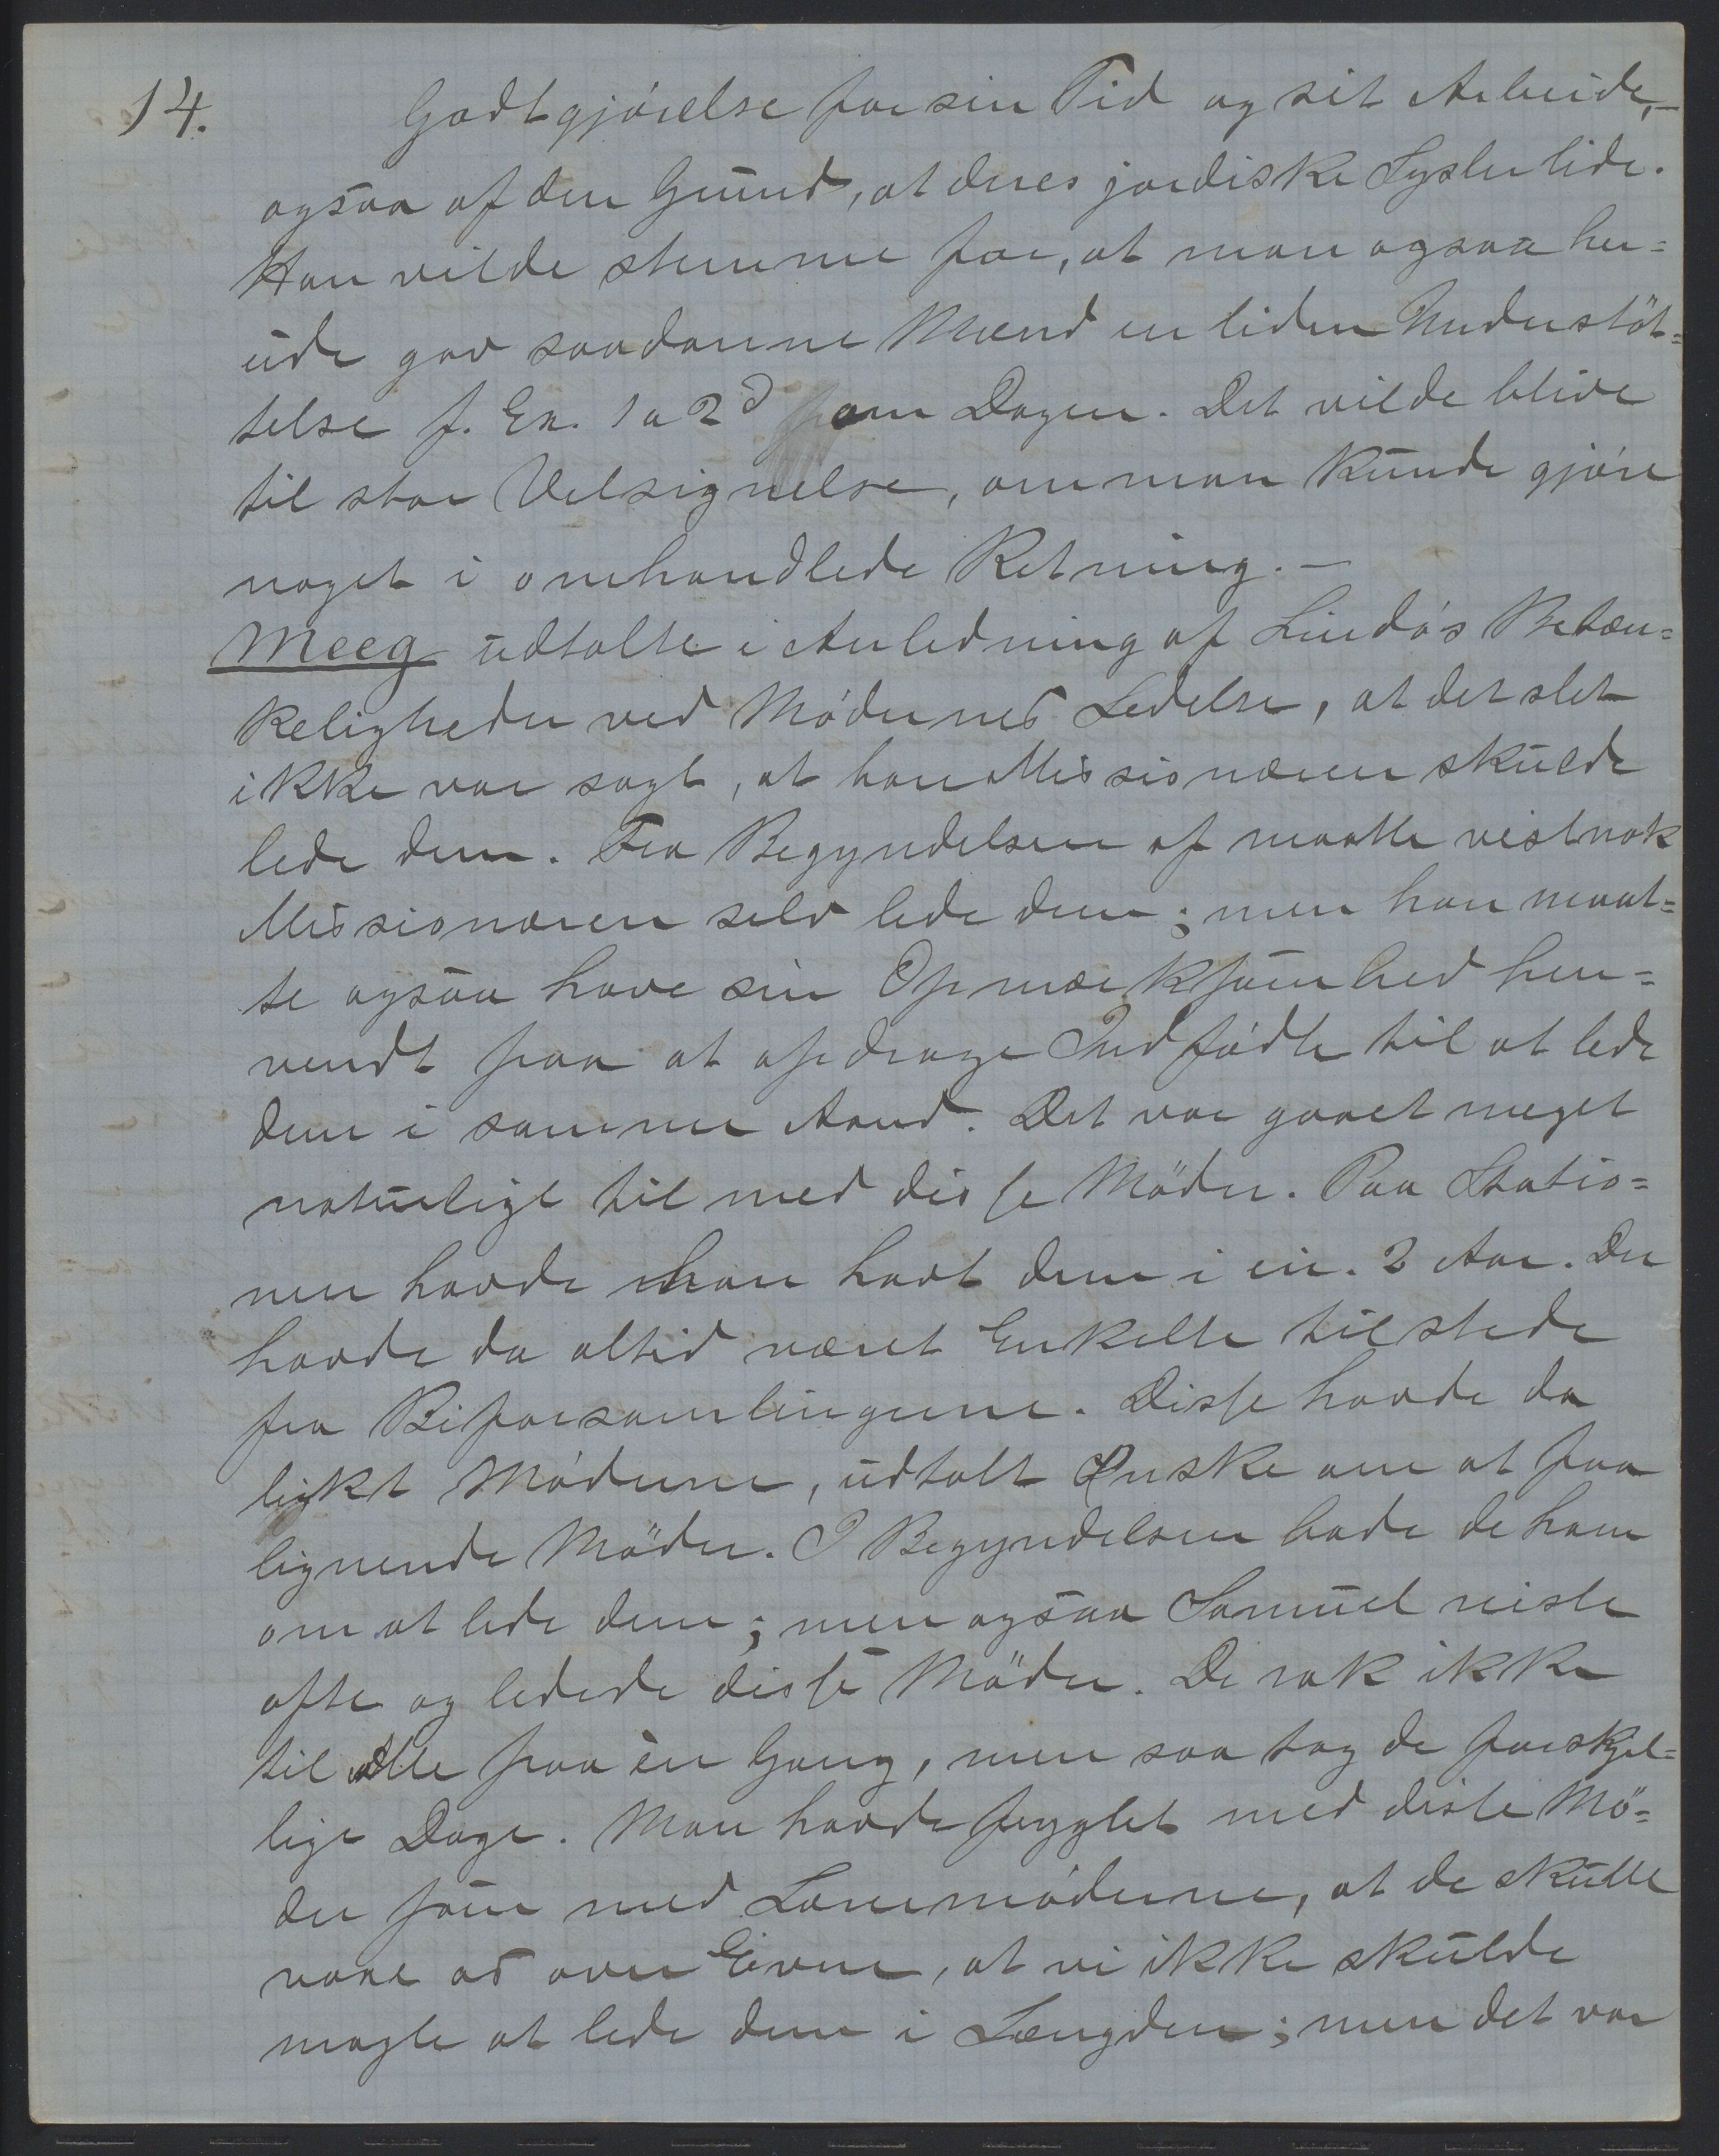 14.
Godtgjörelse for sin Tid og sit Arbeide,–
ogsaa af den Grund, at deres jordiske Sysler lide.
Han vilde stemme for, at man ogsaa her=
ude gav saadanne Mænd en liden Understöt=
telse f. Ex. 1 a 2d om Dagen. Det vilde blive
til stor Velsignelse, om man kunde gjöre
noget i omhandlede Retning.–
Meeg udtalte i Anledning af Lindös Betæn=
keligheder ved Mödernes Ledelse, at det slet
ikke var sagt, at han Missionæren skulde
lede dem. Fra Begyndelsen af maatte vistnok
Missionæren selv lede dem; men han maat=
te ogsaa have sin Opmærksomhed hen=
vendt paa at opdrage Indfödte til at lede
dem i samme Aand. Det var gaaet meget
naturligt til med disse Möder. Paa Statio=
nen havde man havt dem i en. 2 Aar. Der
havde da altid været Enkelte tilstede
fra Biforsamlingerne. Disse havde da
likt Möderne, udtalt Ønske om at faa
lignende Möder. I Begyndelsen bade de ham
om at lede dem; men ogsaa Samuel reiste
ofte og ledede disse Möder. De rak ikke
til Alle paa èn Gang, men saa tog de forskjel=
lige Dage. Man havde frygtet med disse Mö=
der som med Lovemöderne, at de skulle
voxe os over Evne, at vi ikke skulde
magte at lede dem i Længden; men det var